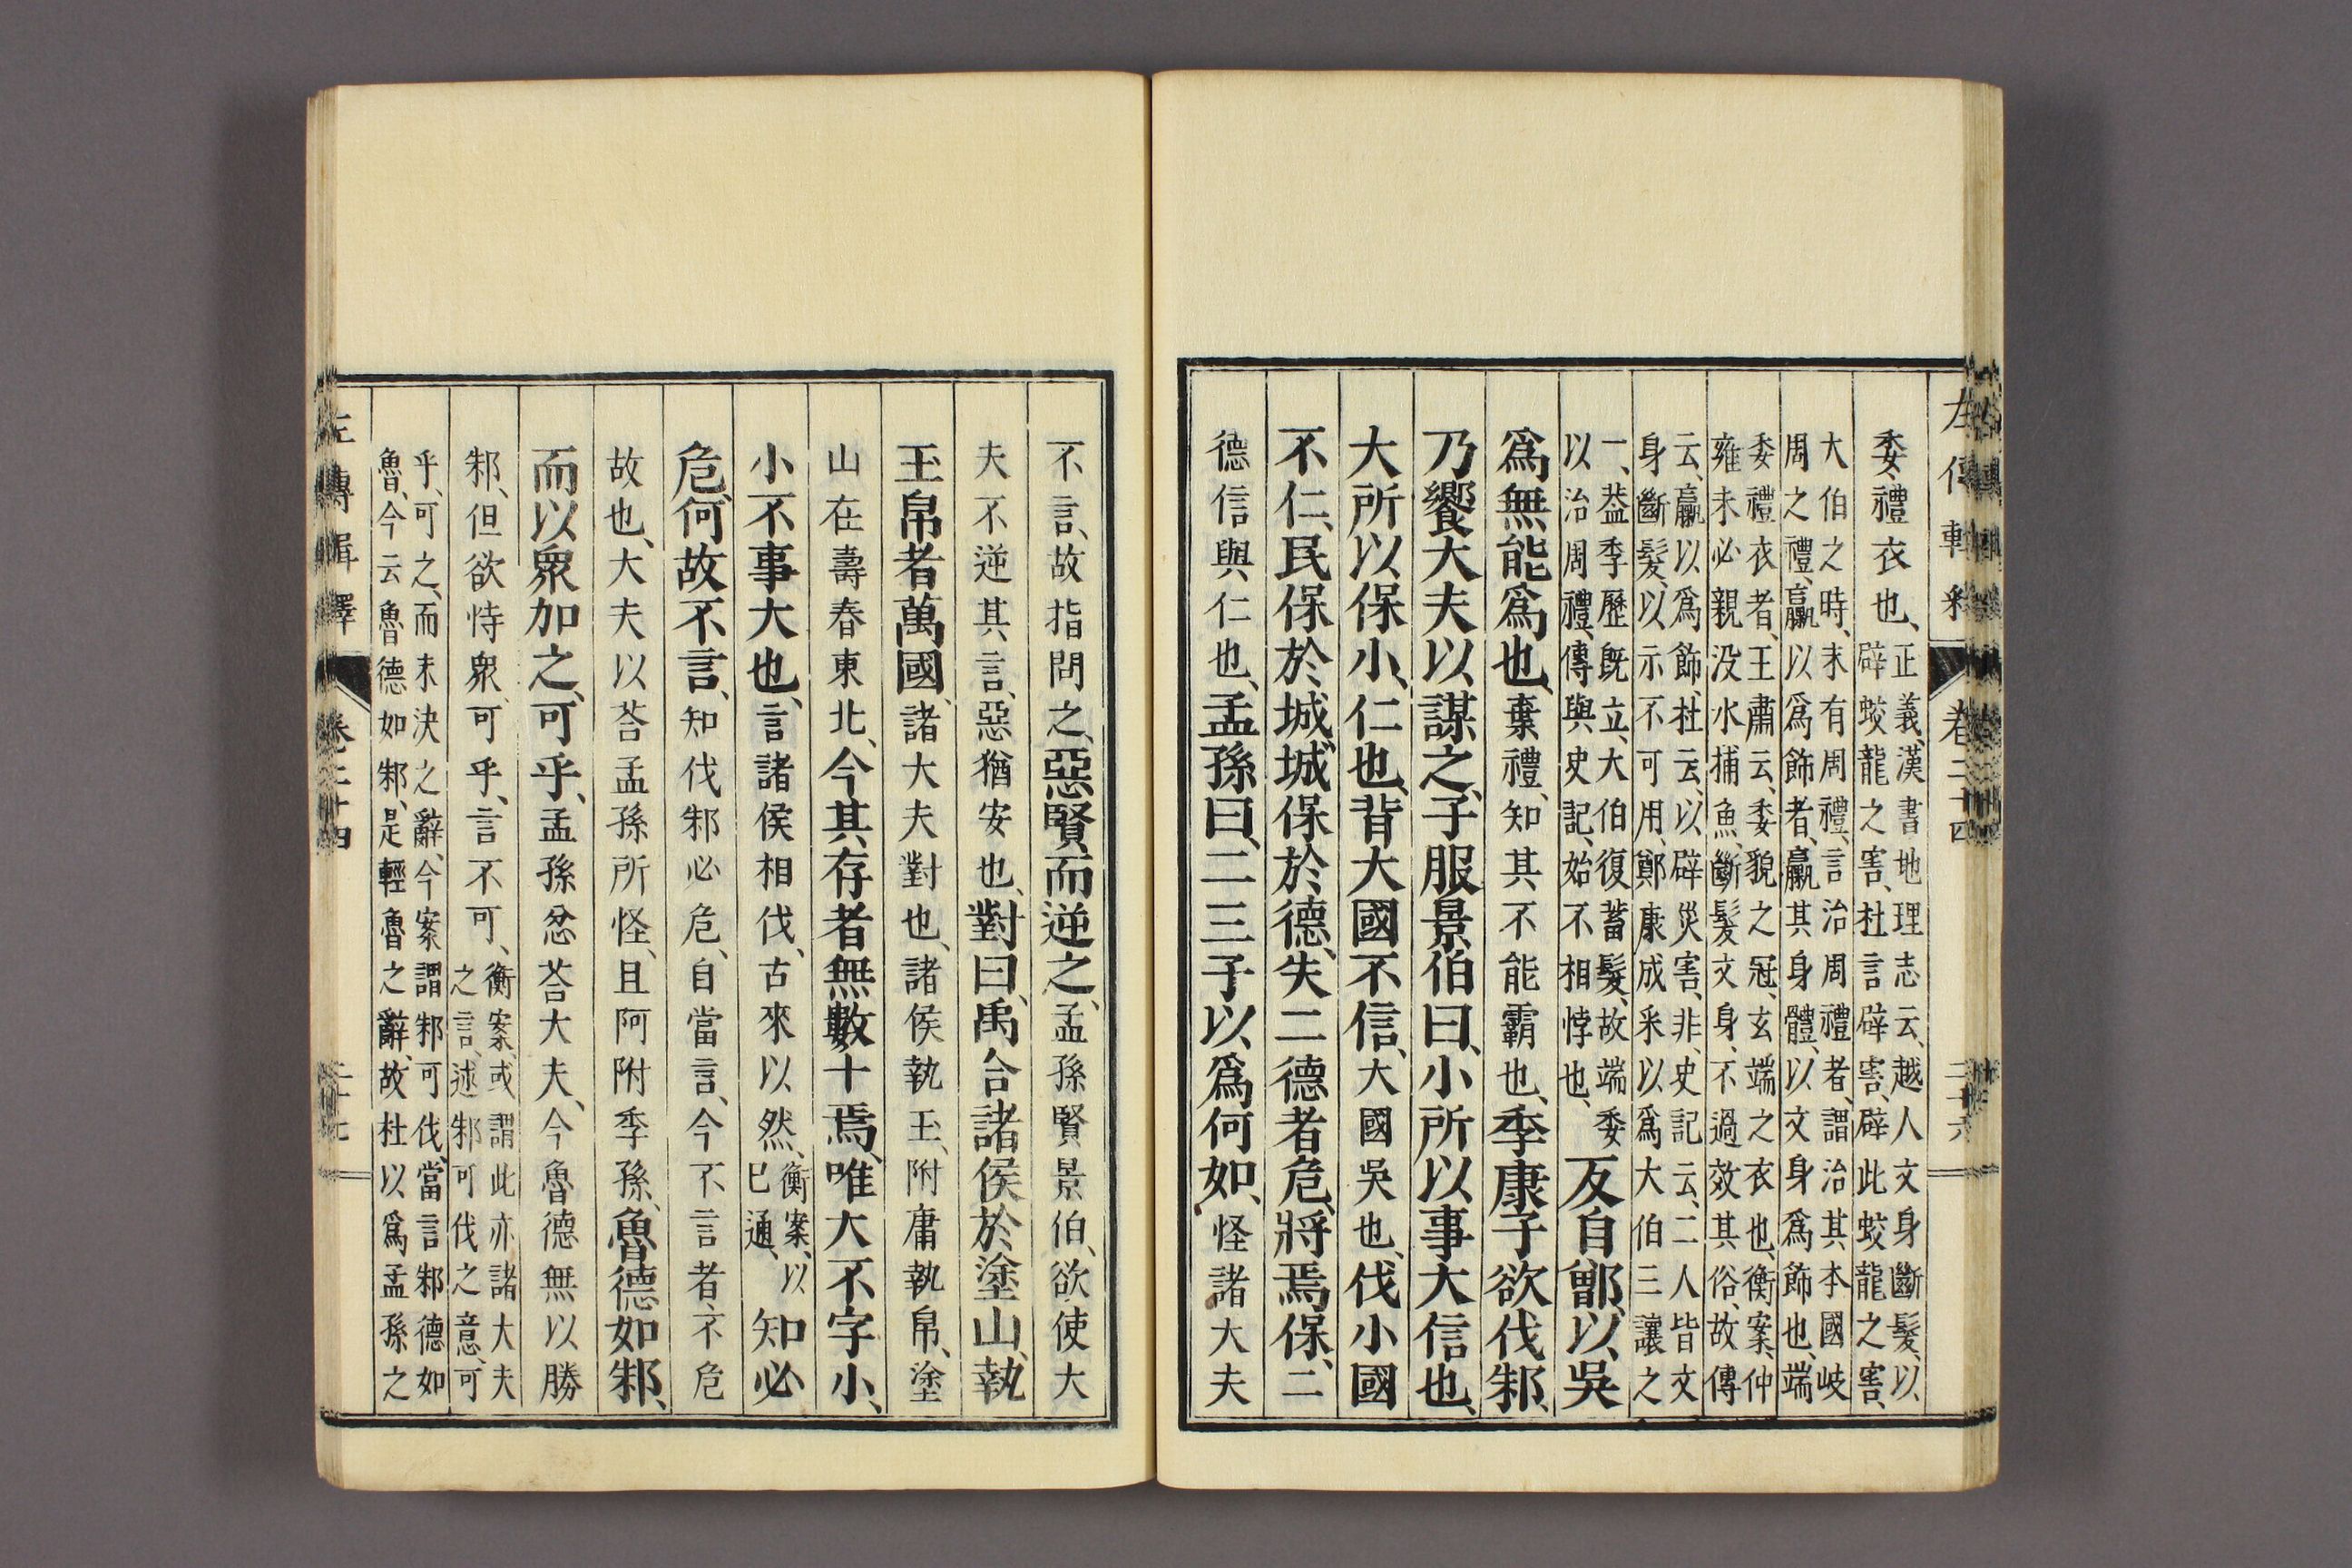 左傳輯釋 卷二十四 二十六
委、禮衣也、正義、漢書地理志云、越人文身斷髮、以
辟蛟龍之害、杜言辟害、辟此蛟龍之害、
大伯之時、未有周禮、言治周禮者、謂治其本國岐
周之禮、贏以爲飾者、贏其身體、以文身爲飾也、端
委禮衣者、王肅云、委貌之冠、玄端之衣也、衡案、仲
雍未必親没水捕魚、斷髮文身、不過效其俗、故傳
云、贏以爲飾、杜云、以辟災害、非、史記云、二人皆文
身斷髮、以示不可用、鄭康成釆以爲大伯三讓之
一、葢季歷既立、大伯復蓄髮、故端委
以治周禮、傳與史記、始不相悖也、
反自鄫、以吳
爲無能爲也、棄禮、知其不能霸也、季康子欲伐邾、
乃饗大夫以謀之、子服景伯曰、小所以事大信也、
大所以保小、仁也、背大國不信、大國吳也、伐小國
不仁、民保於城、城保於德、失二德者危、將焉保、二
德信與仁也、孟孫曰、二三子以爲何如、怪諸大夫
不言、故指問之、惡賢而逆之、孟孫賢景伯、欲使大
夫不逆其言、惡猶安也、對曰、禹合諸侯於塗山、執
玉帛者萬國、諸大夫對也、諸侯執玉、附庸執帛、塗
山在壽春東北、今其存者無數十焉、唯大不字小、
小不事大也、言諸侯相伐、古來以然、衡案、以已通、知必
危、何故不言、知伐邾必危、自當言、今不言者、不危
故也、大夫以荅孟孫所怪、且阿附季孫、魯德如邾、
而以衆加之、可乎、孟孫忿荅大夫、今魯德無以勝
邾、但欲恃衆、可乎、言不可、衡案、或謂此亦諸大夫
之言、述邾可伐之意、可
乎、可之、而未決之辭、今案謂邾可伐、當言邾德如
魯、今云魯德如邾、是輕魯之辭、故杜以爲孟孫之
左傳輯釋 卷二十四 二十七